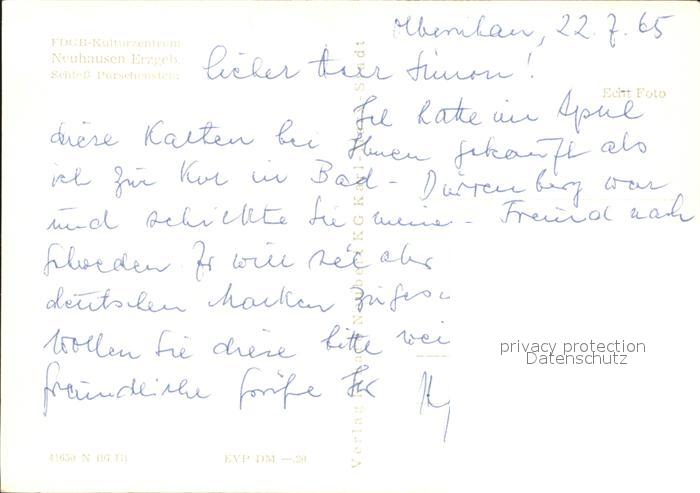 Olbernhau, 22.7.65
FDGB-Kulturzentrum
Neuhausen Erzgeb.
Schloß Purschenstein
lieber Herr Simon!
Echt Foto
Ich hatte im April
diese Karten bei Ihnen gekauft als
ich zur Kur in Bad-Dürrenberg war
und schickte sie meine- Freund nach
Schweden. Er will sei aber
deutschen Marken
Wollen Sie diese bitte wei
freundliche Grüße Ihr
Verlag KG Karl-Marx-Stadt
privacy protection
Datenschutz
41650 N
EVP DM —.20